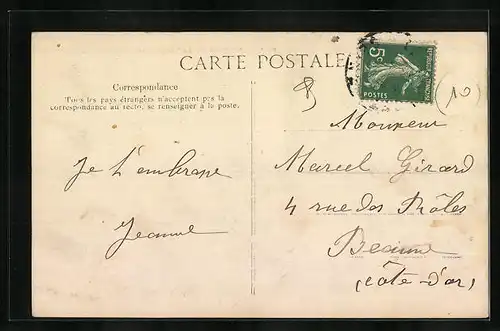 CARTE POSTALE
Correspondance
Tous les pays étrangers n'acceptent pas la
correspondance au recto, se renseigner à la poste.
5c
POSTES
(10)
Monsieur
Marcel Girard
4 rue des Rôles
Beaune
(Côte-d'or)
Je t'embrasse
Jeanne